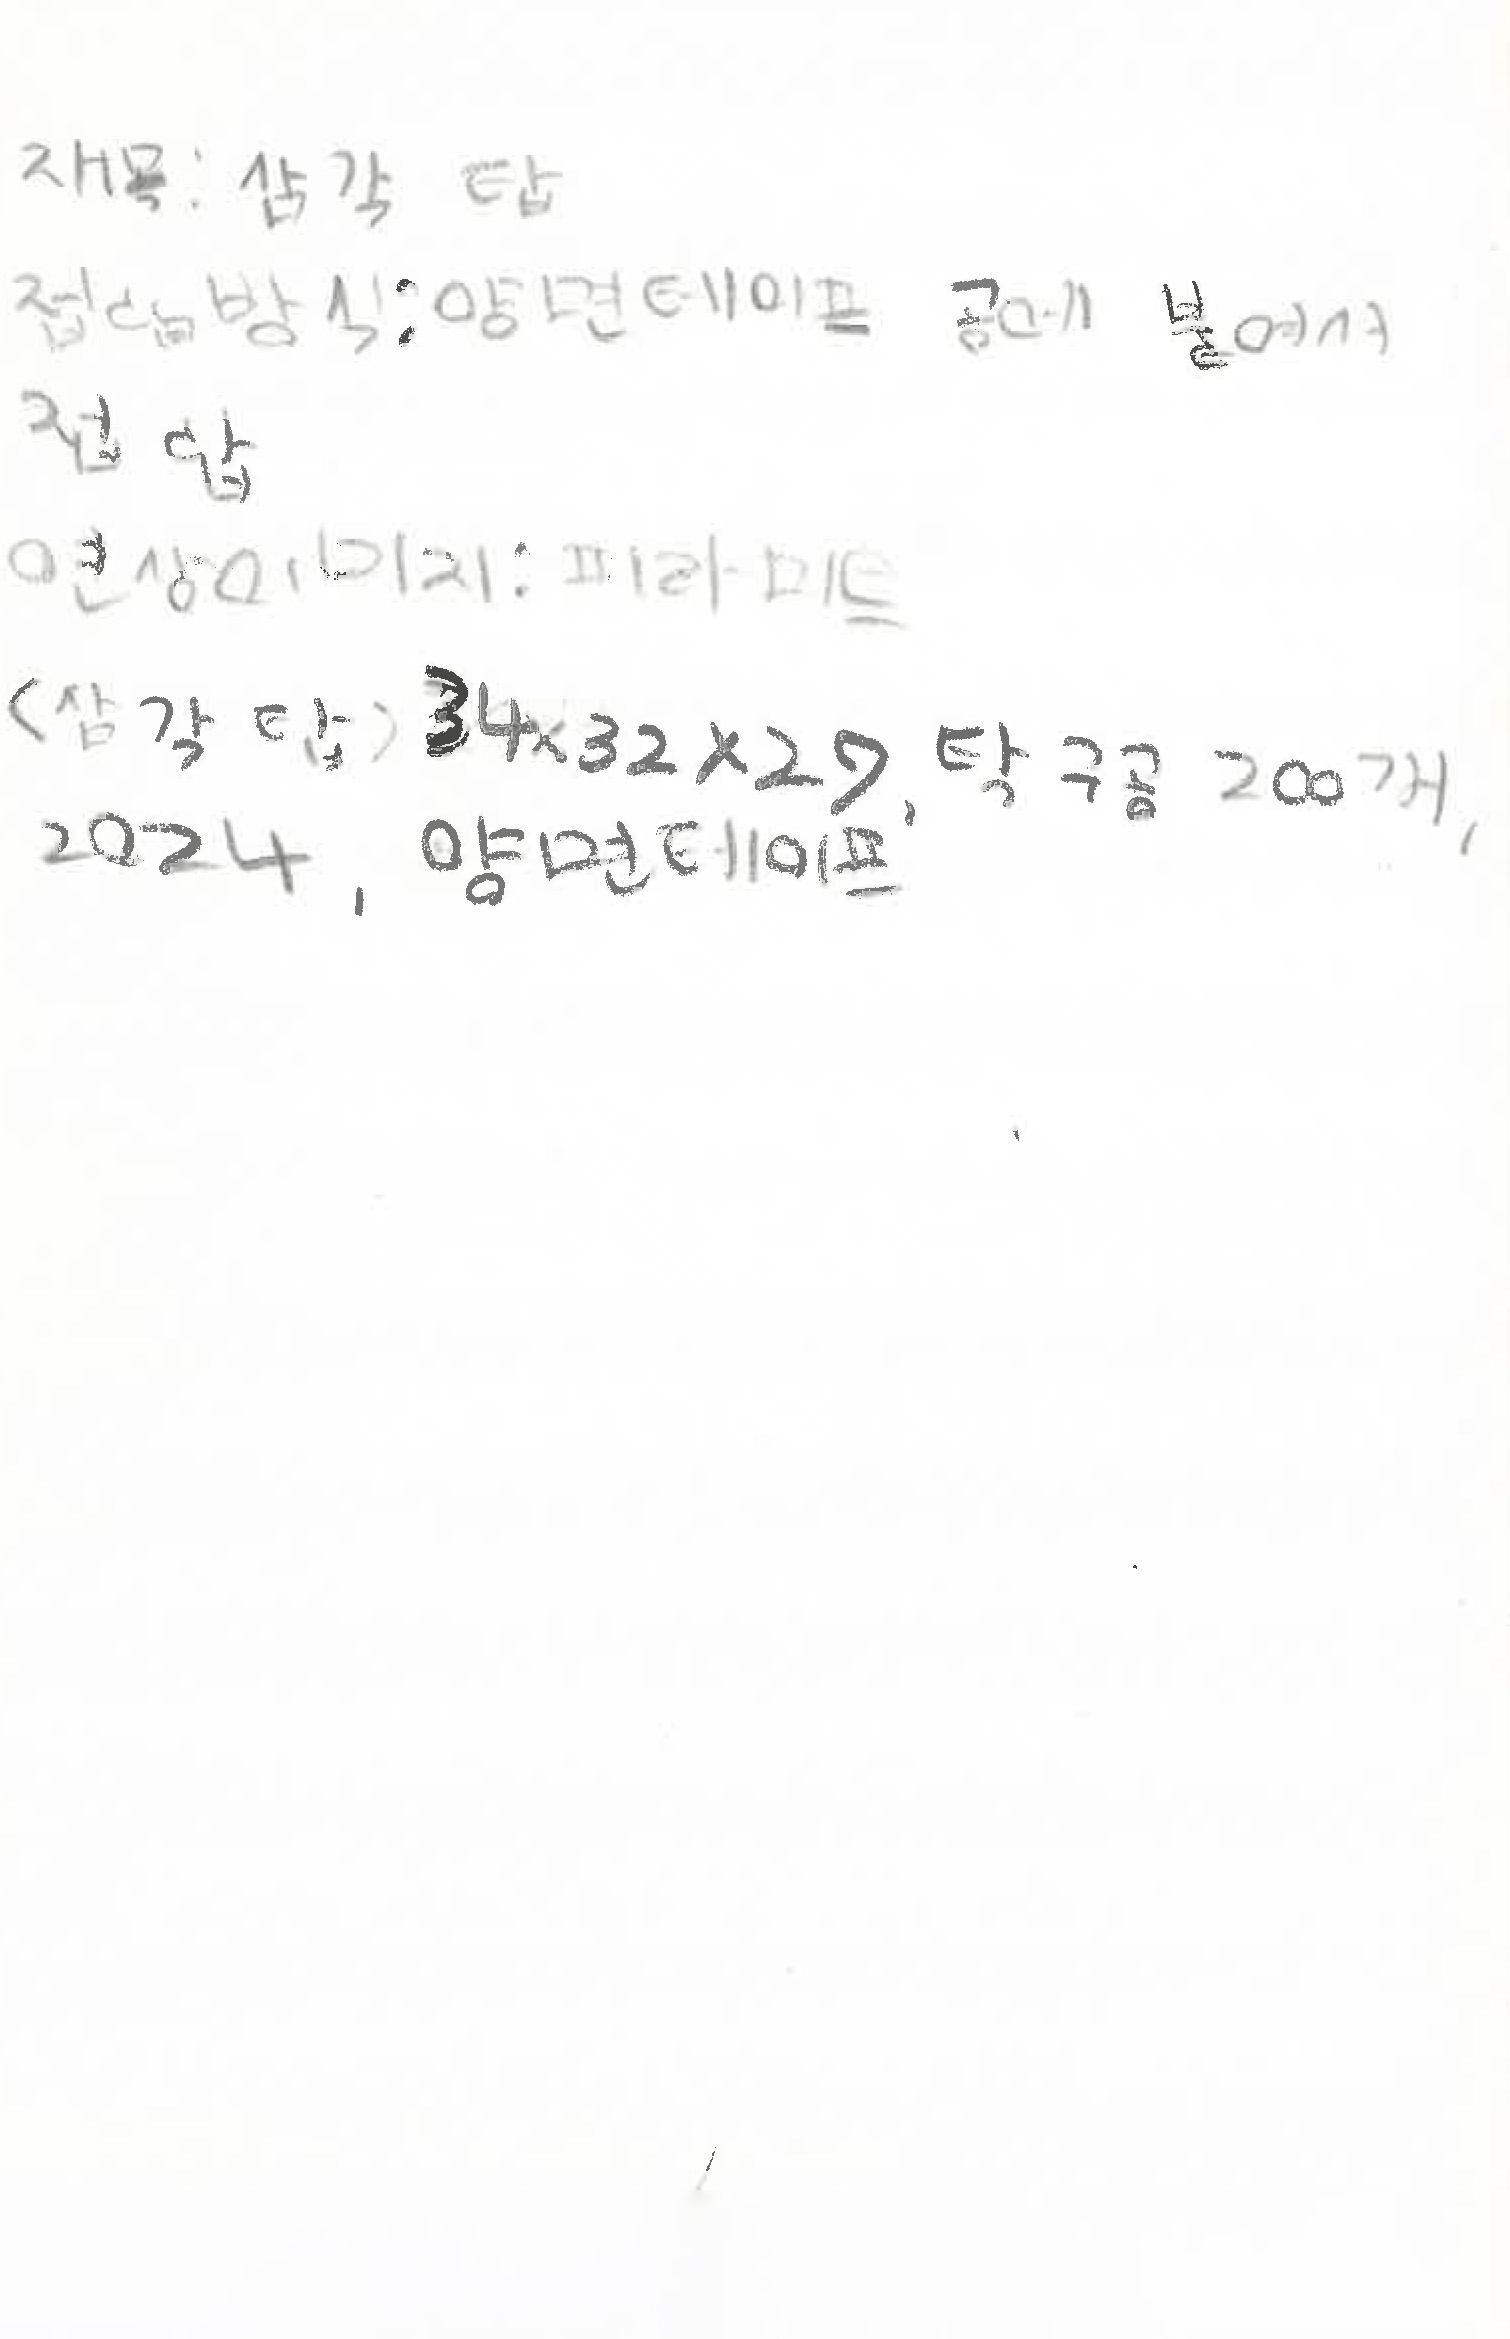 재목: 삼각 탑
접합방식: 양면테이프 공에 붙여서
접합
연상이미지: 피라미드
<삼각 탑> 34×32×27, 탁구공 200개,
2024, 양면테이프